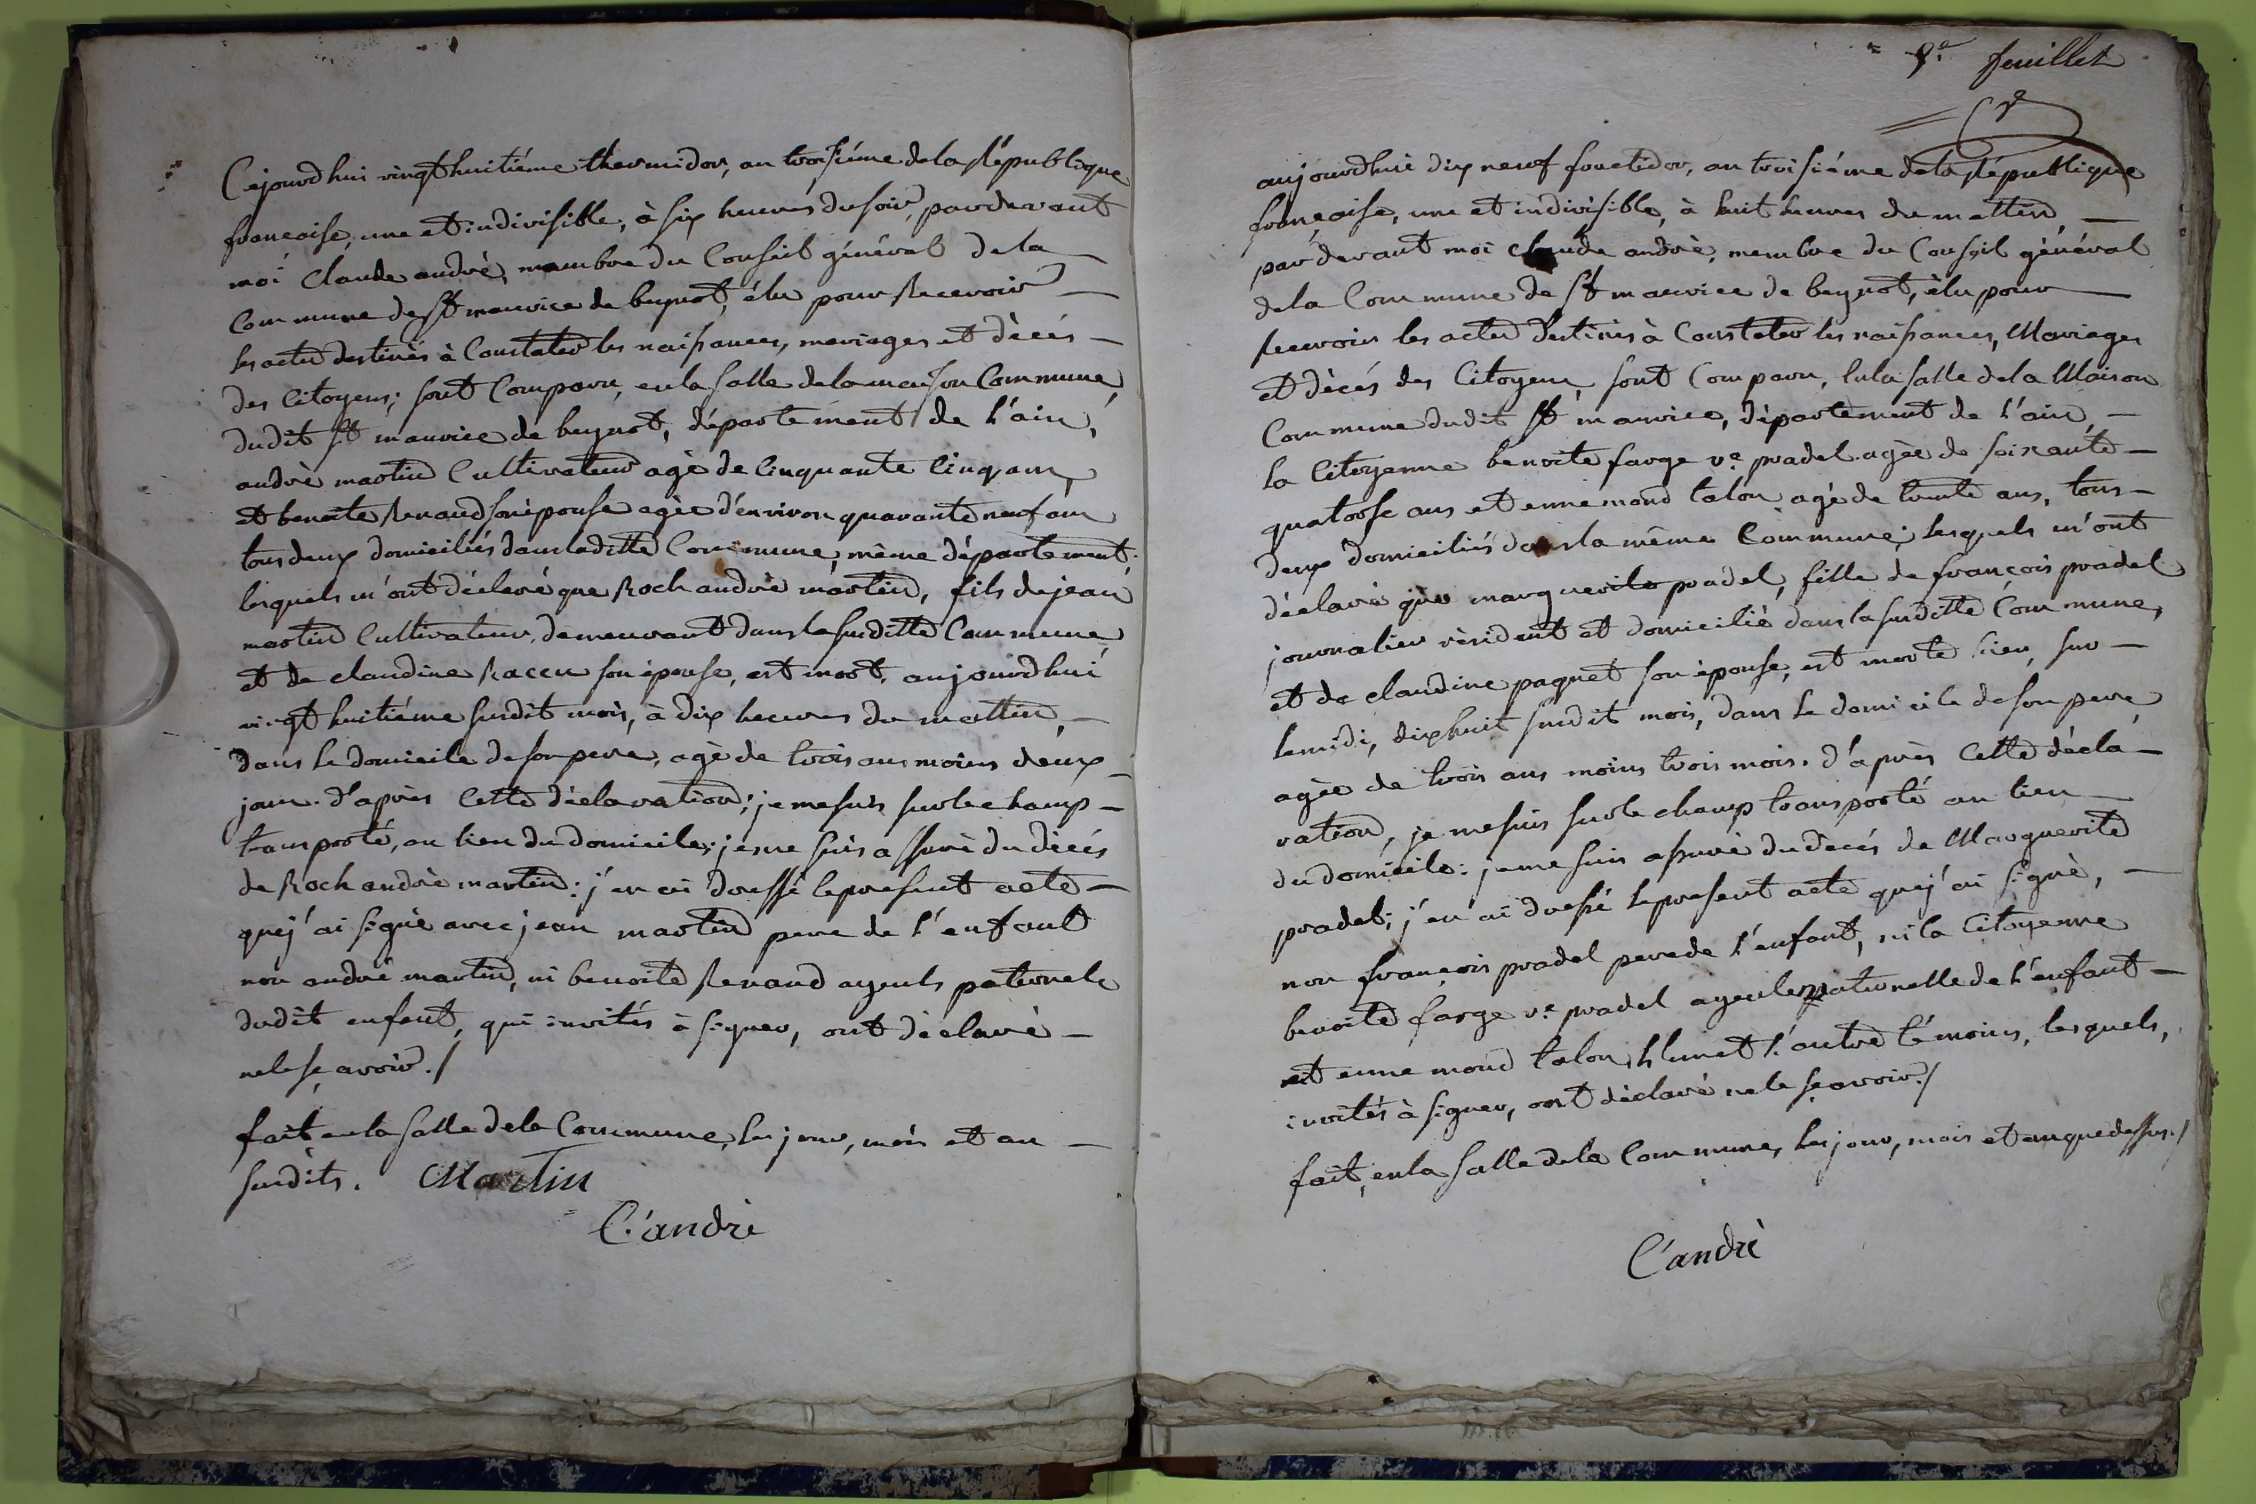 Cejourdhui vingt huitiéme thermidor, an troisiéme de la République
francoise, une et indivisible, à six heures du soir, pardevant
moi Claude andrè, membre du Conseil général de la
Commune de St maurice de beynot, élu pour Recevoir
les actes destinés à Constater les naissances, mariages et dècés
des Citoyens; sont Comparu, en la salle de la maison Commune,
dudit St maurice de beynot, département de l'ain,
andrè martin Cultivateur agè de Cinquante Cinq ans,
et benoite Renaud son épouse agèe d'environ quarante neuf ans
tous deux domiciliés dans laditte Commune, même département;
lesquels m'ont déclaré que Roch andrè martin, fils de jean
martin Cultivateur, demeurant dans la susditte Commune,
et de claudine Raccu son épouse, est mort, aujourdhui
vingt huitiéme susdit mois, à dix heures du mattin,
dans le domicile de son pere, agè de trois ans moins deux
jours. d'après cette déclaration; je me suis sur le champ
transporté, au lieu du domicile; je me suis assurè du dècés
de Roch andrè martin: j'en ai dressé le présent acte
que j'ai signè avec jean martin pere de l'enfant
non andrè martin, ni benoite Renaud ayeuls paternels
dudit enfant, qui invités à signer, ont dèclarè
ne le sçavoir./
fait en la salle de la Commune, les jour, mois et an
susdits. Martin
C. andrè
feuillet
aujourdhui dix neuf fructidor, an troisiéme de la République
françoise, une et indivisible, à huit heures du mattin
par devant moi claude andrè, membre du Conseil général
de la Commune de St maurice de beynot, élu pour
Recevoir les actes destinés à Constater les naissances, Mariages
et dècés des Citoyens, sont Comparu, en la salle de la Maison
Commune dudit St maurice, département de l'ain,
la Citoyenne benoite farge ve. pradel agèe de soixante
quatorse ans et ennemond talon agè de trente ans, tous
deux domiciliés dans la même Commune; lesquels m'ont
déclaré que marguerite pradel, fille de françois pradel
journalier rèsident et domiciliè dans la susditte Commune,
et de claudine paquet son épouse, est morte hier, sur
le midi, dix huit susdit mois, dans le domicile de son pere,
agèe de trois ans moins trois mois. d'après cette décla-
ration, je me suis sur le champ transporté au lieu
du domicile: je me suis assurè du dècés de Marguerite
pradel; j'en ai dressé le present acte que j'ai signè,
non françois pradel pere de l'enfant, ni la Citoyenne
benoite farge ve. pradel ayeule paternelle de l'enfant
et ennemond talon, l'un et l'autre témoins, lesquels,
invités à signer, ont déclarè ne le sçavoir./
fait, en la salle de la Commune, les jour, mois et an que dessus./
C. andrè